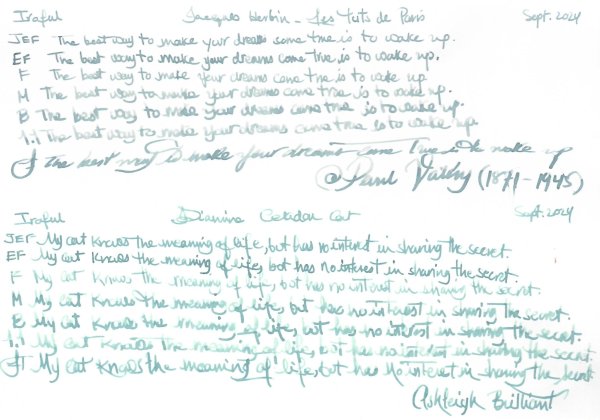 Iroful Jacques Herbin - Les Toits de Paris Sept. 2024
JEF The best way to make your dreams come true is to wake up.
EF The best way to make your dreams come true is to wake up.
F The best way to make your dreams come true is to wake up.
M The best way to make your dreams come true is to wake up.
B The best way to make your dreams come true is to wake up.
1.1 The best way to make your dreams come true is to wake up.
The best way to make your dreams come true is to wake up
Paul Valéry (1871-1945)
Iroful Diamine Celadon Cat Sept. 2024
JEF My cat knows the meaning of life, but has no interest in sharing the secret.
EF My cat knows the meaning of life, but has no interest in sharing the secret.
F My cat knows the meaning of life, but has no interest in sharing the secret.
M My cat knows the meaning of life, but has no interest in sharing the secret.
B My cat knows the meaning of life, but has no interest in sharing the secret.
1.1 My cat knows the meaning of life, but has no interest in sharing the secret.
My cat knows the meaning of life, but has no interest in sharing the secret
Ashleigh Brilliant